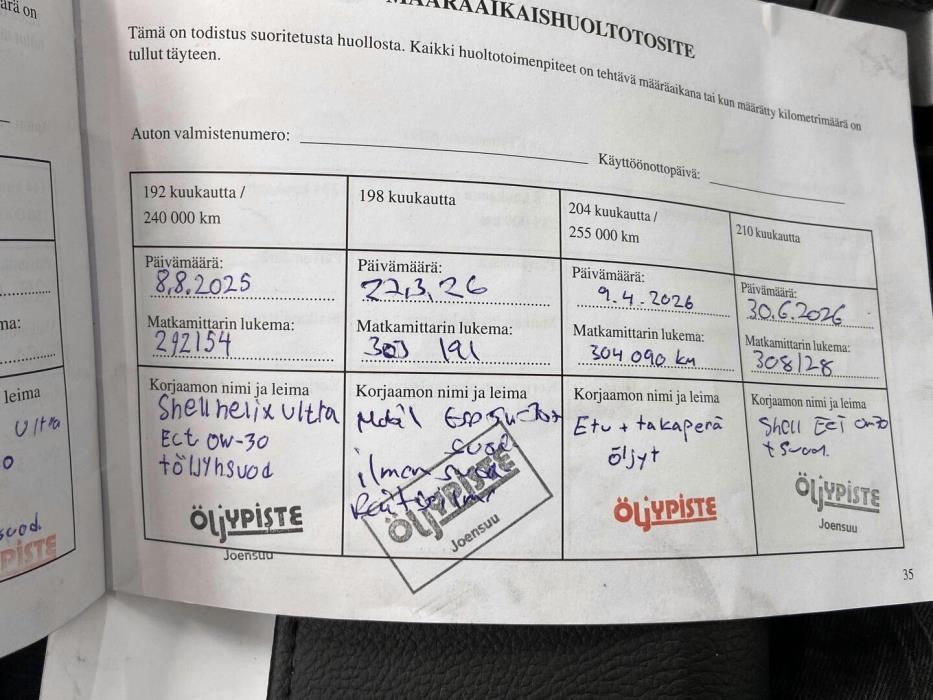 ärä on
MÄÄRÄAIKAISHUOLTOTOSITE
Tämä on todistus suoritetusta huollosta. Kaikki huoltotoimenpiteet on tehtävä määräaikana tai kun määrätty kilometrimäärä on
tullut täyteen.
Auton valmistenumero:
Käyttöönottopäivä:
192 kuukautta /
240 000 km
Päivämäärä:
8.8.2025
Matkamittarin lukema:
292154
Korjaamon nimi ja leima
Shell helix Ultra
Ect 0W-30
+öljyhsuod
ÖLJYPISTE
Joensuu
198 kuukautta
Päivämäärä:
22.3.26
Matkamittarin lukema:
303 191
Korjaamon nimi ja leima
suod
ilman suod
ÖLJYPISTE
Joensuu
204 kuukautta /
255 000 km
Päivämäärä:
9.4.2026
Matkamittarin lukema:
304 090 km
Korjaamon nimi ja leima
Etu + takaperä
öljyt
ÖLJYPISTE
210 kuukautta
Päivämäärä:
30.6.2026
Matkamittarin lukema:
308128
Korjaamon nimi ja leima
Shell Ect 0W-30
+ suod.
ÖLJYPISTE
Joensuu
na:
leima
Ultra
0
suod.
PISTE
35